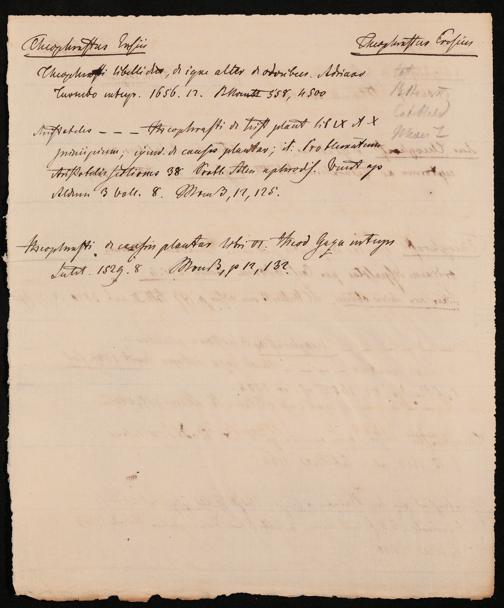 Theophrastus Eresius Theophrastus Eresius
Theophrasti libelli duo, de igne alter de odoribus. Adriano
Turnebo interpr. 1656. 12. 558, 4500
Aristoteles - - - Theophrasti de hist plant lib IX & X
principium; ejusd. de causis plantar; it. Problematum
Aristotelis sections 38 Probl. Alex aphrodis. Venet ap
Aldum 3 voll. 8. 12, 125.
Theophrasti de causis plantar libri VI. Theod Gaza interpr
Lutet. 1529. 8 p 12, 132.